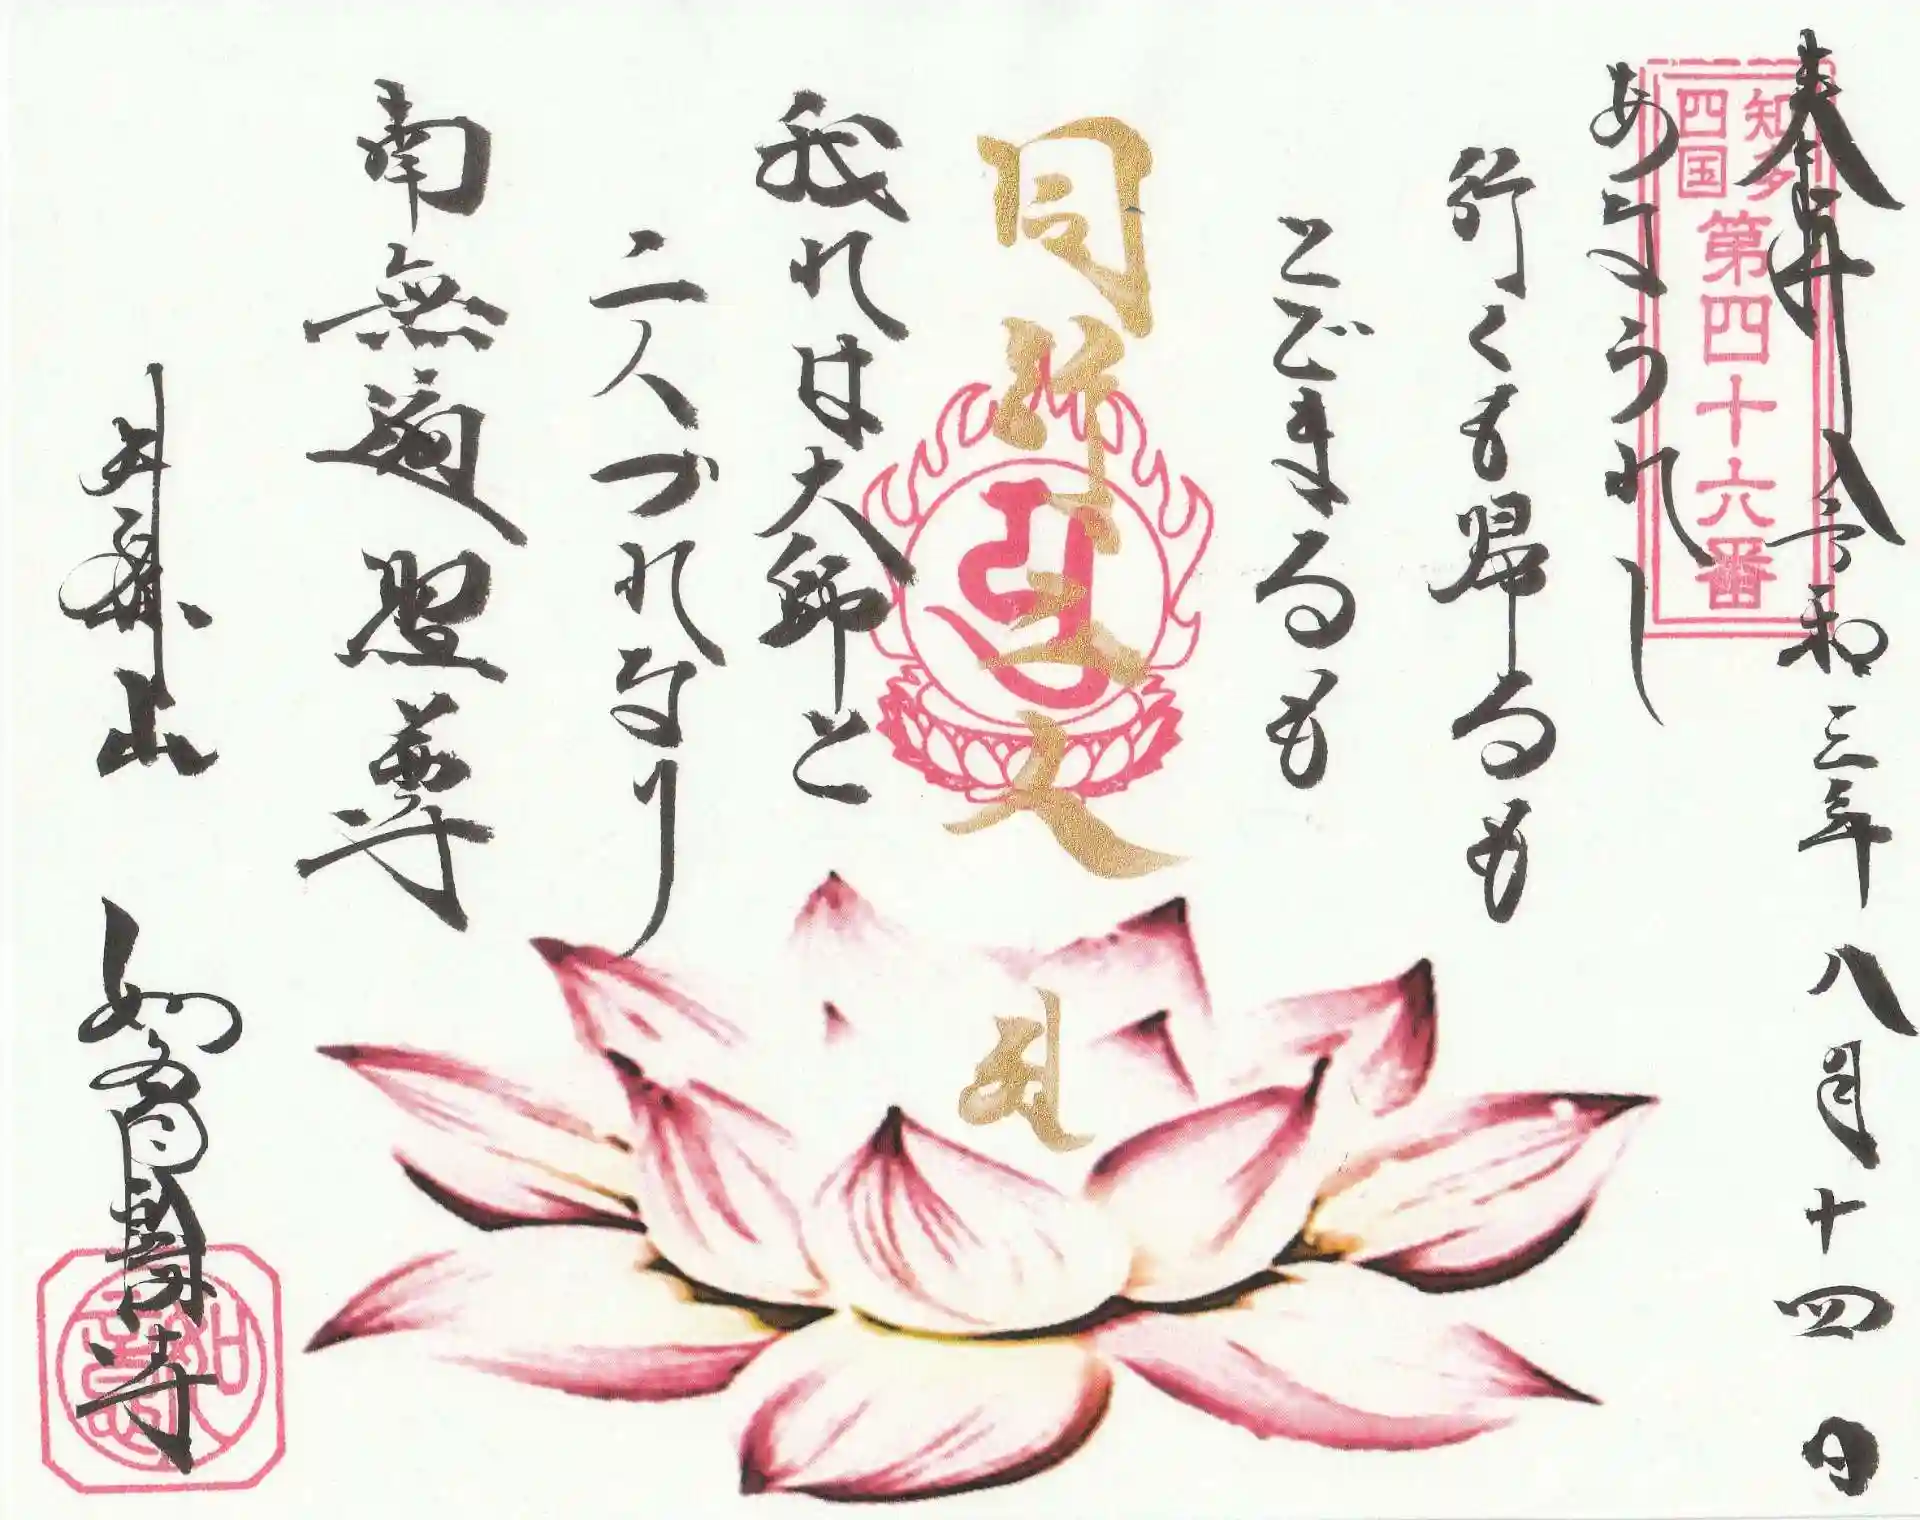 奉拝 令和三年八月十四日
知多
四国
第四十六番
あなうれし
行くも帰るも
とどまるも
同行二人
我れは大師と
二人づれなり
南無遍照尊
井際山
如意輪寺